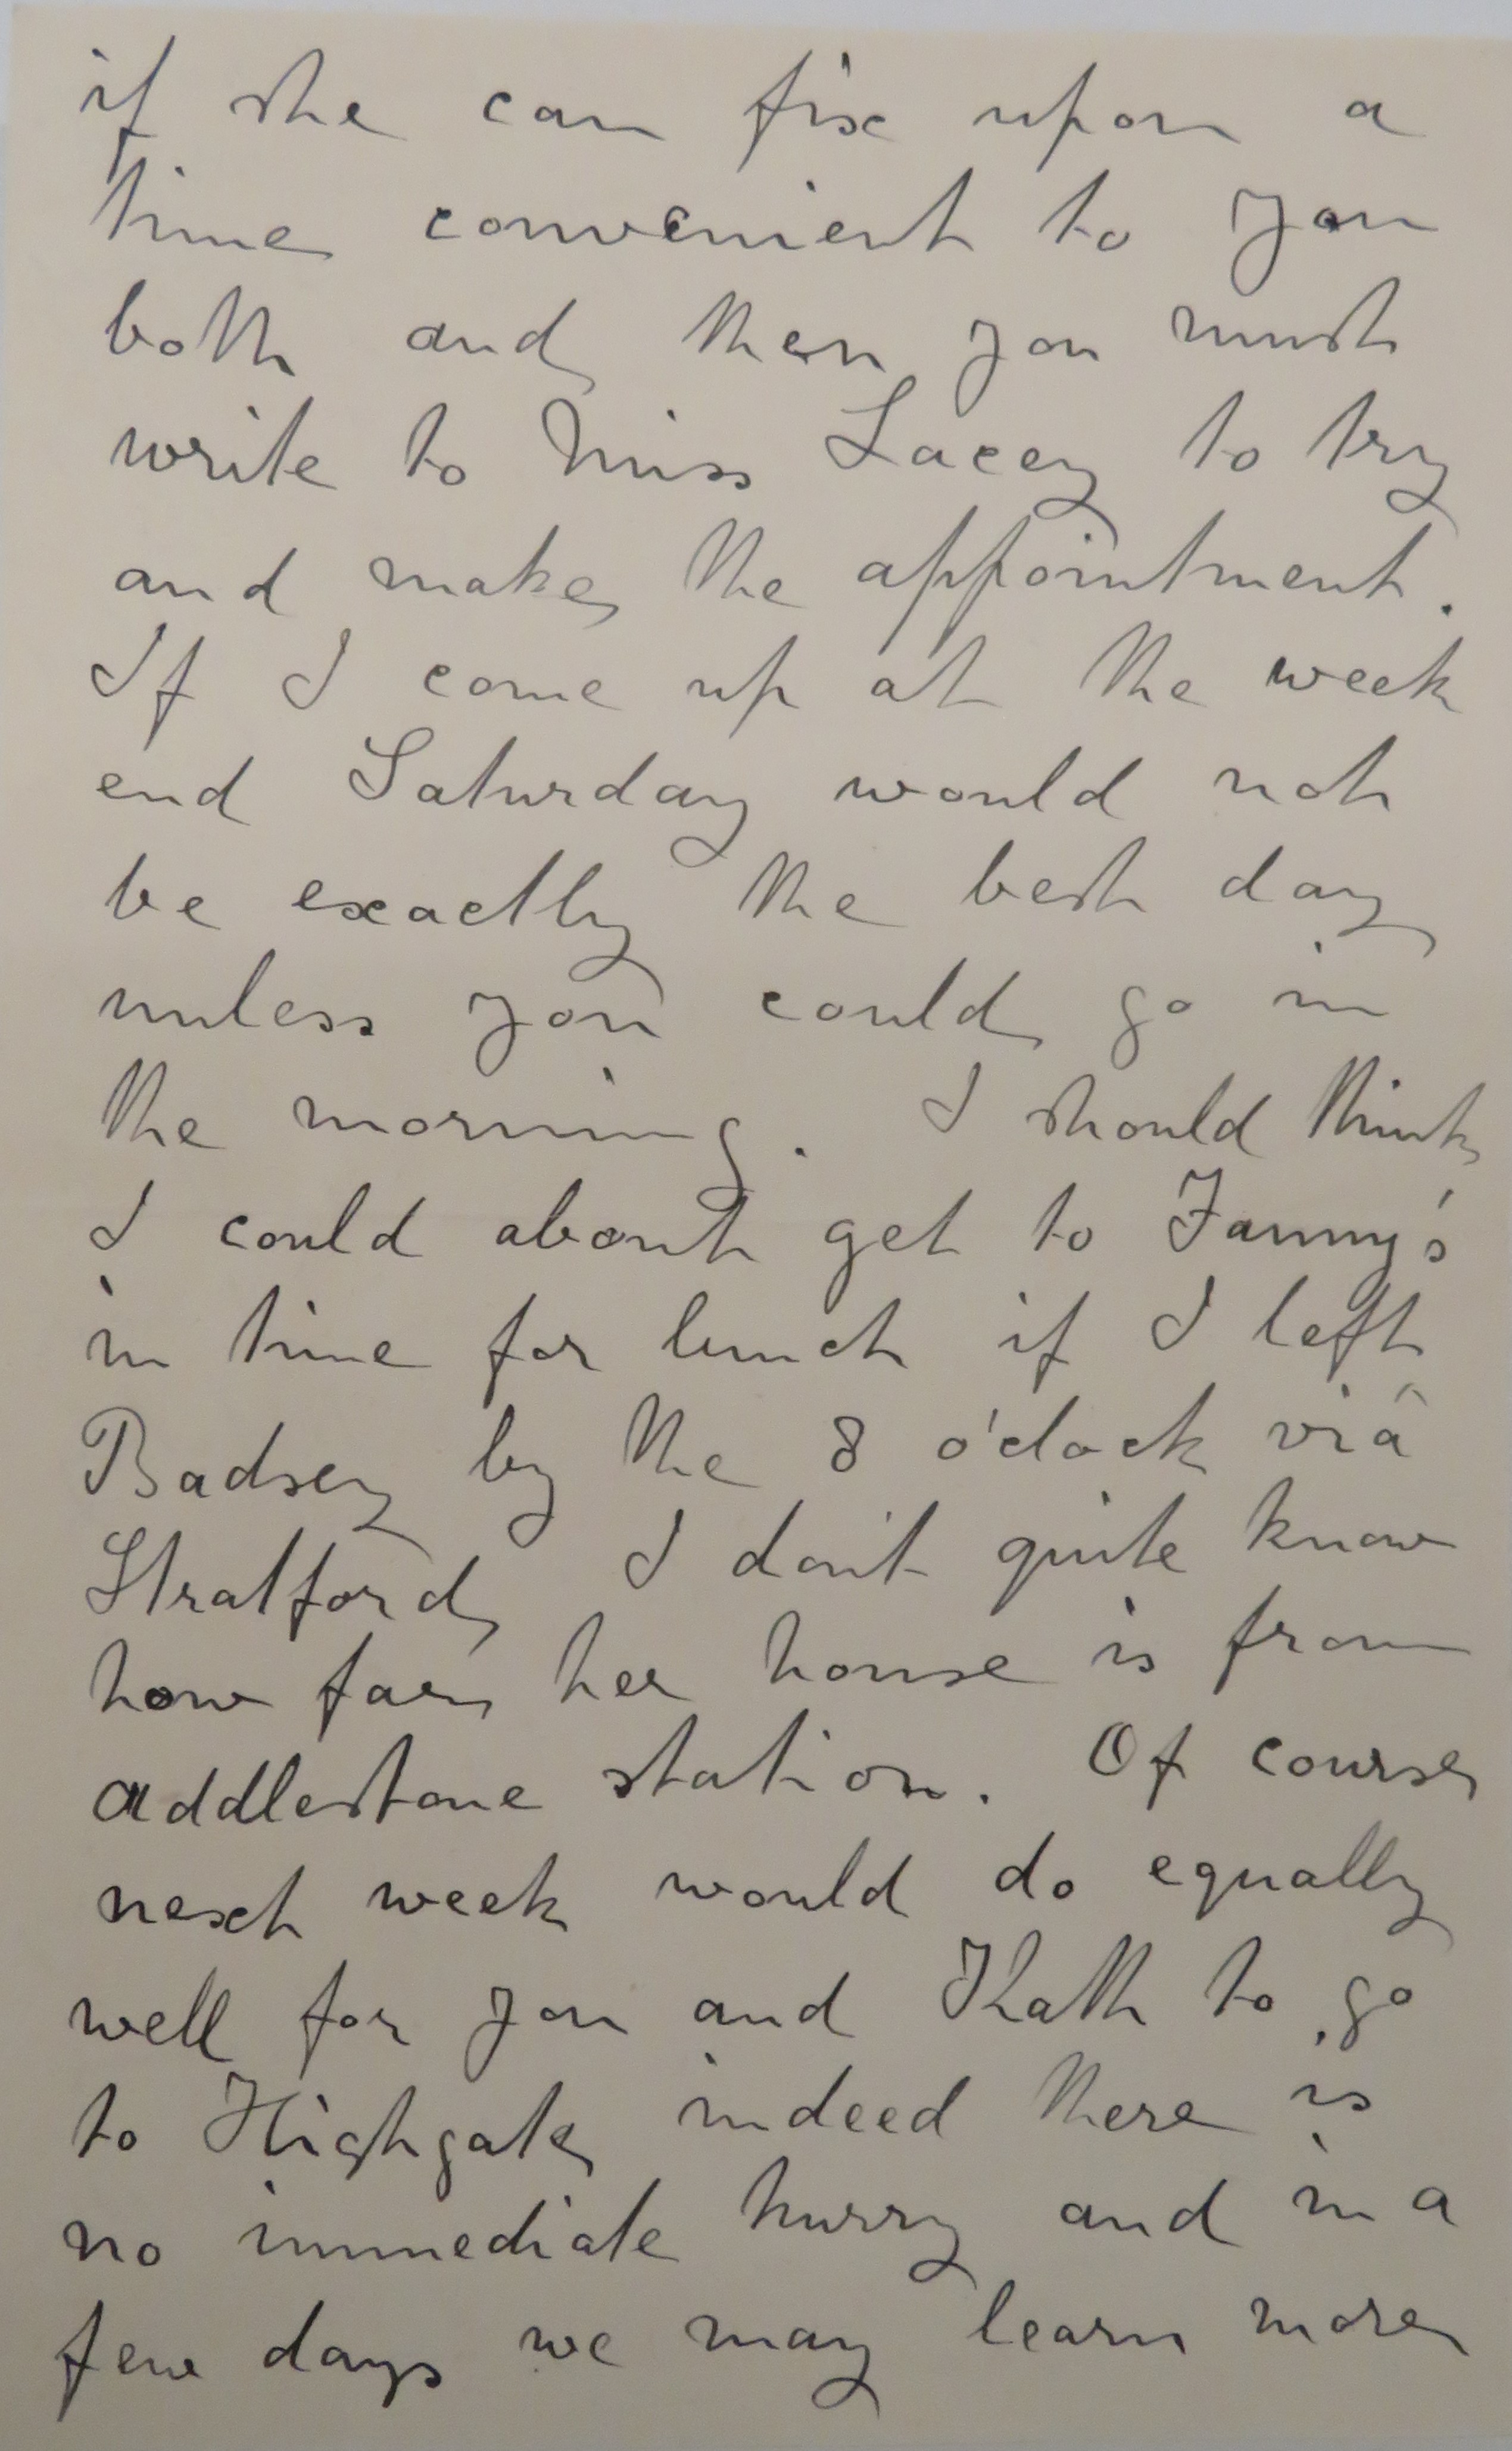 if she can fix upon a
time convenient to you
both and then you must
write to Miss Lacey to try
and make the appointment.
If I come up at the week
end Saturday would not
be exactly the best day
unless you could go in
the morning. I should think
I could about get to Fanny's
in time for lunch if I left
Badsey by the 8 o'clock viâ
Stratford, I don't quite know
how far her house is from
Addlestone station. Of course
next week would do equally
well for you and Kath to go
to Highgate, indeed there is
no immediate hurry and in a
few days we may learn more